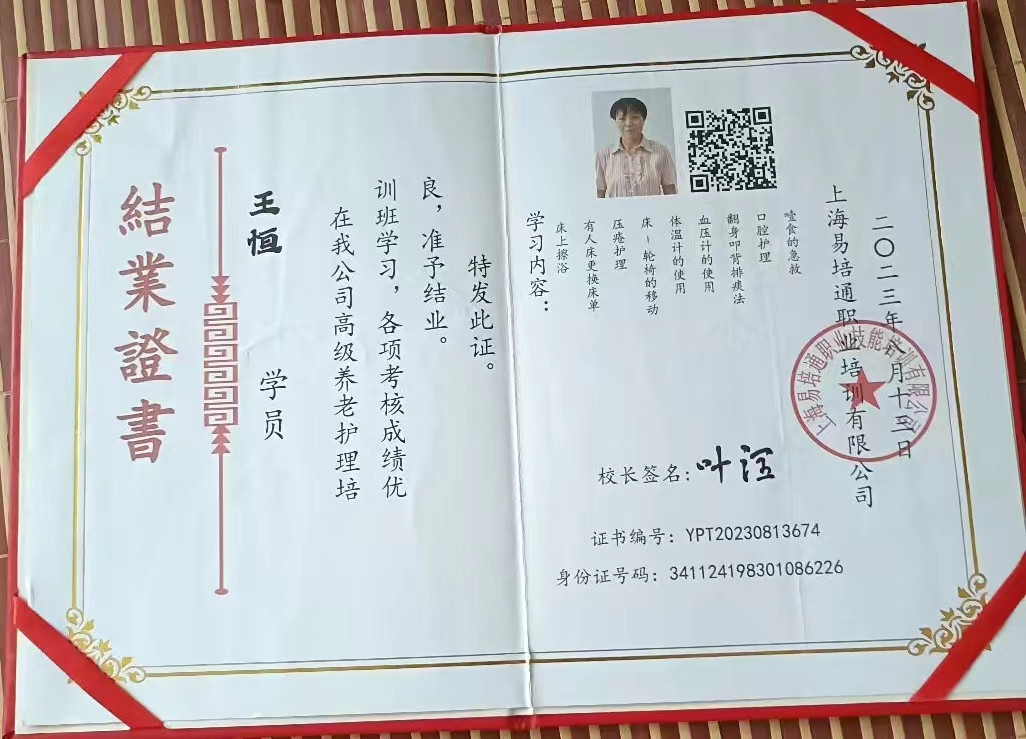 結業證書
王恒
学员
在我公司高级养老护理培
训班学习，各项考核成绩优
良，准予结业。
特发此证。
学习内容：
床上擦浴
有人床更换床单
压疮护理
床-轮椅的移动
体温计的使用
血压计的使用
翻身叩背排痰法
口腔护理
噎食的急救
上海易培通职业培训有限公司
二〇二三年月十三日
上海易培通职业技能培训有限公司
校长签名：叶
证书编号：YPT20230813674
身份证号码：341124198301086226